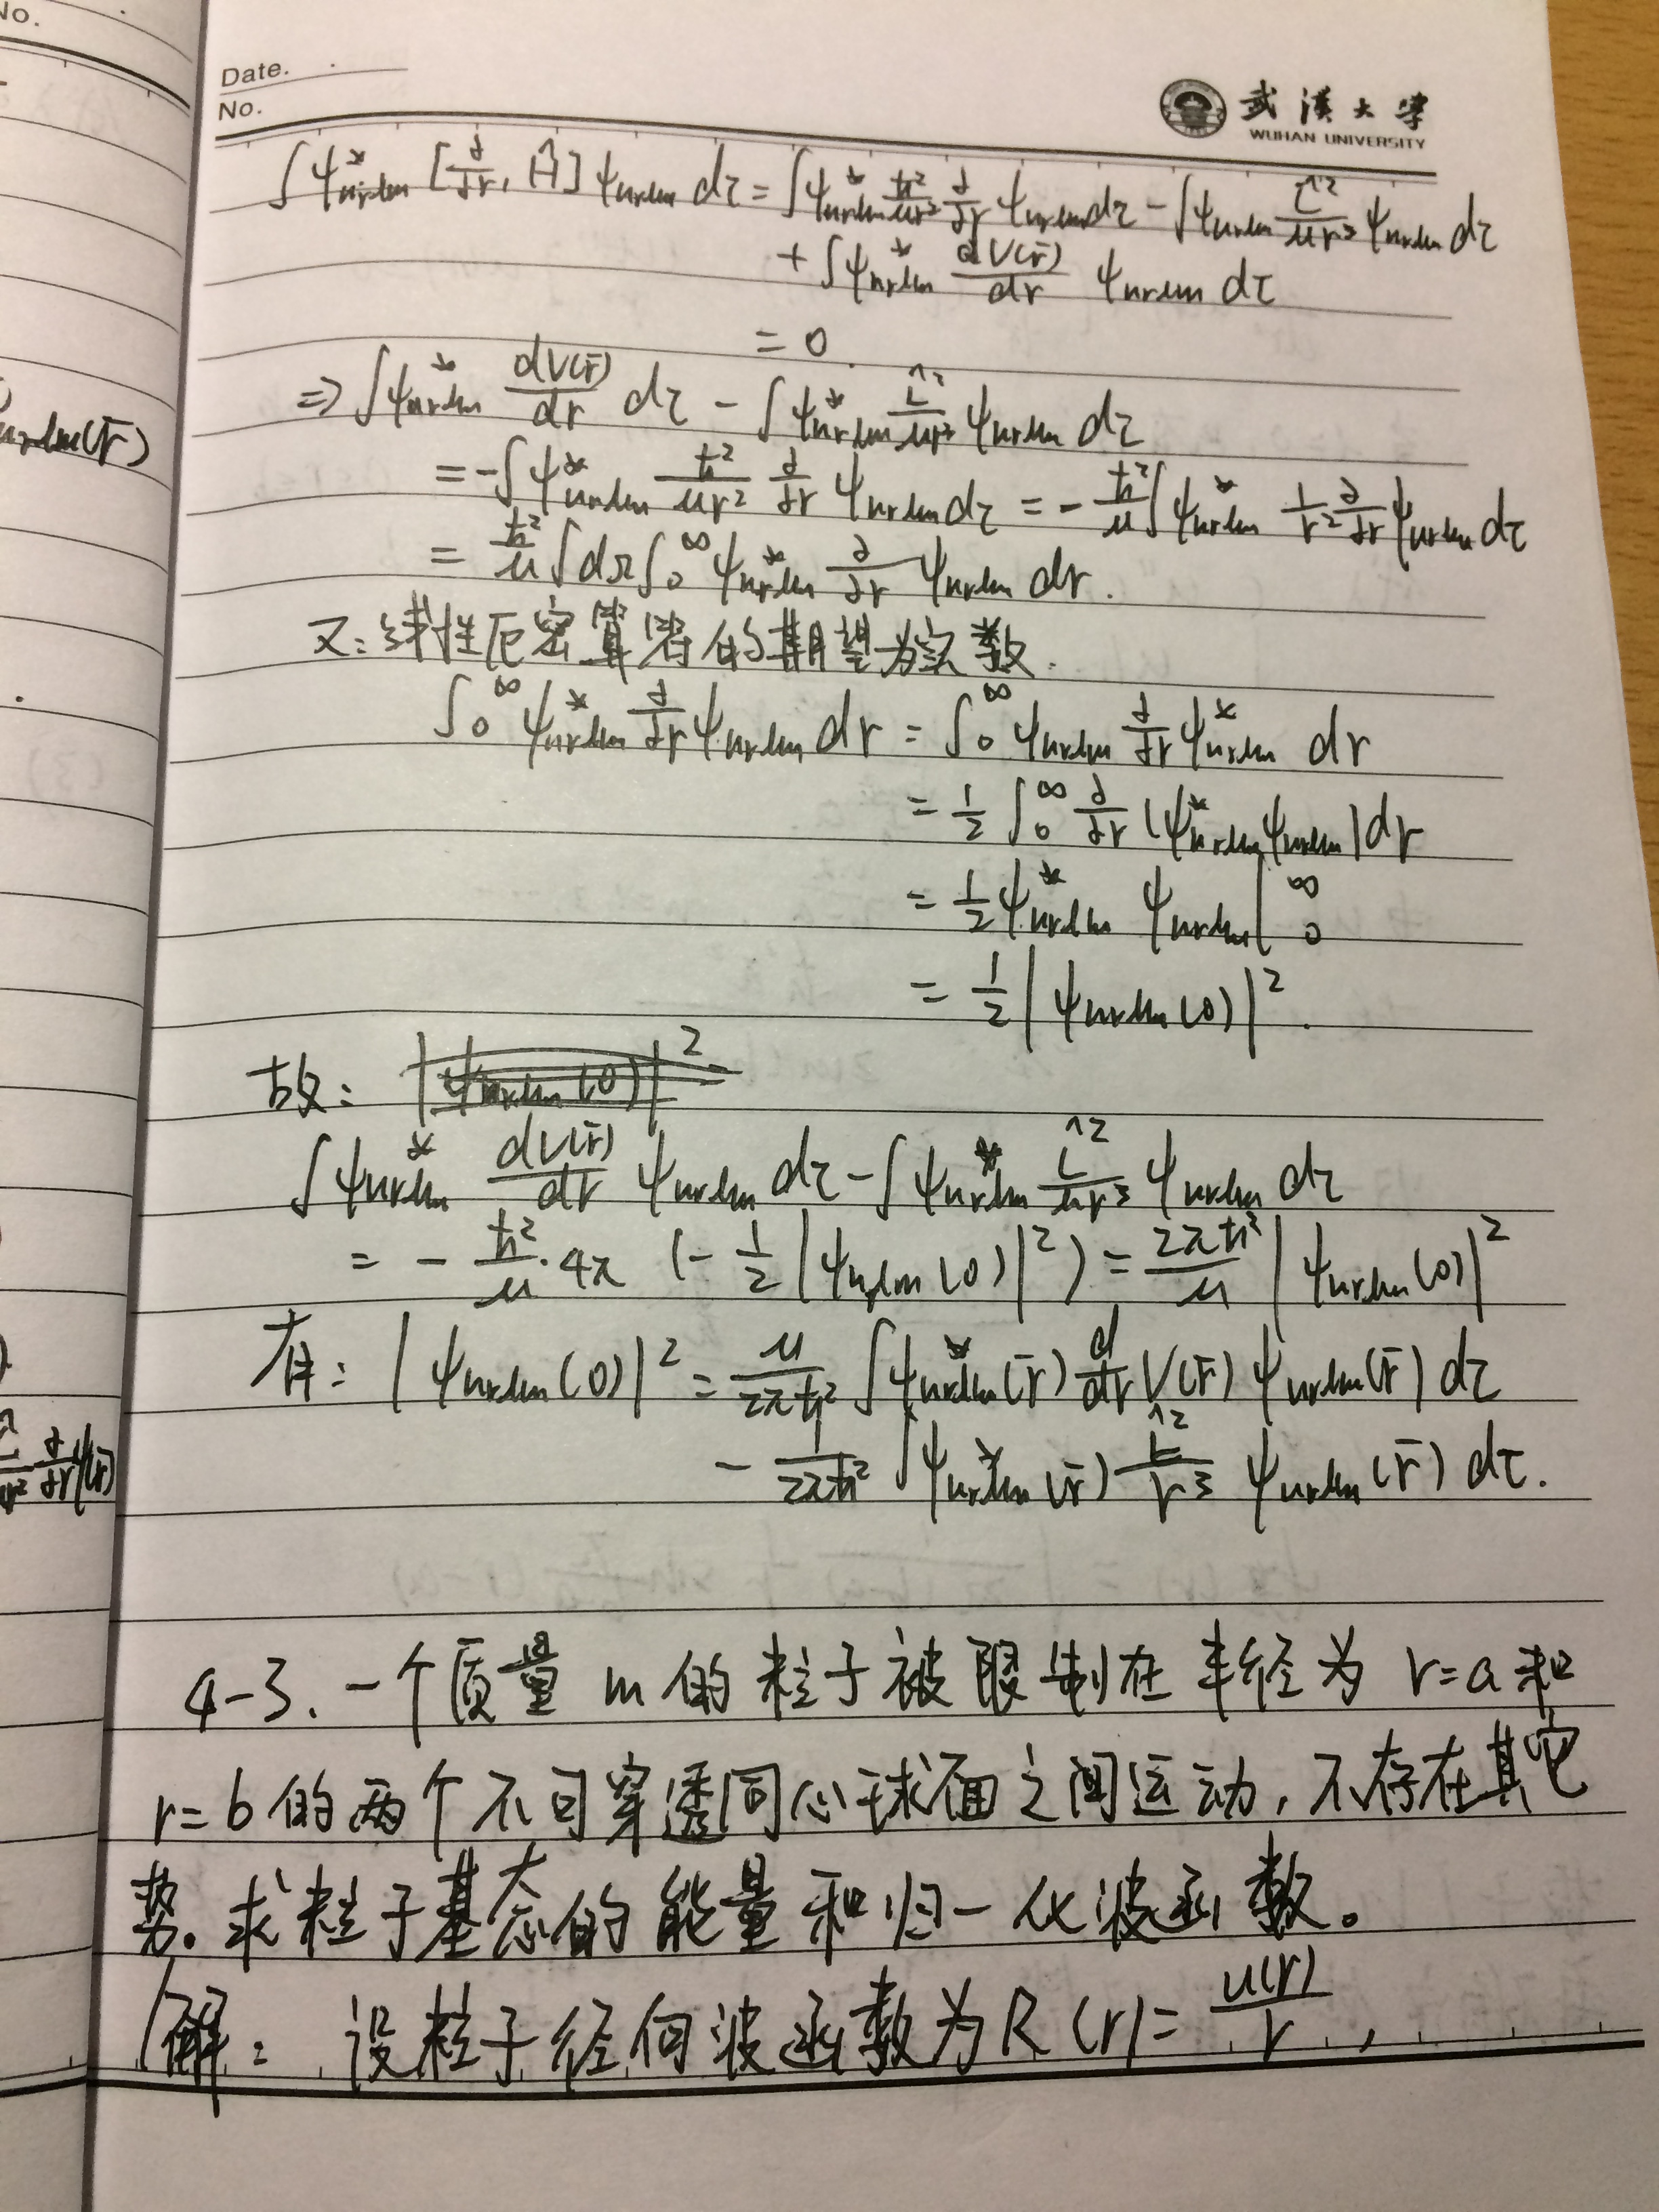 No.
Date.
No.
武漢大学
WUHAN UNIVERSITY
∫ψ*_{nrlm} [∂/∂r, Ĥ] ψ_{nrlm} dτ = ∫ψ*_{nrlm} ħ²/μr² ∂/∂r ψ_{nrlm} dτ − ∫ψ_{nrlm} L̂²/μr³ ψ_{nrlm} dτ
+ ∫ψ*_{nrlm} dV(r)/dr ψ_{nrlm} dτ
= 0
⇒ ∫ψ*_{nrlm} dV(r)/dr dτ − ∫ψ*_{nrlm} L̂²/μr³ ψ_{nrlm} dτ
= −∫ψ*_{nrlm} ħ²/μr² ∂/∂r ψ_{nrlm} dτ = −ħ²/μ ∫ψ*_{nrlm} 1/r² ∂/∂r ψ_{nrlm} dτ
= ħ²/μ ∫dΩ ∫₀^∞ ψ*_{nrlm} ∂/∂r ψ_{nrlm} dr.
又：线性厄密算符的期望为实数.
∫₀^∞ ψ*_{nrlm} ∂/∂r ψ_{nrlm} dr = ∫₀^∞ ψ_{nrlm} ∂/∂r ψ*_{nrlm} dr
= 1/2 ∫₀^∞ ∂/∂r (ψ*_{nrlm} ψ_{nrlm}) dr
= 1/2 ψ*_{nrlm} ψ_{nrlm} |₀^∞
= 1/2 |ψ_{nrlm}(0)|².
故： |ψ_{nrlm}(0)|²
∫ψ*_{nrlm} dV(r)/dr ψ_{nrlm} dτ − ∫ψ*_{nrlm} L̂²/μr³ ψ_{nrlm} dτ
= −ħ²/μ · 4π (−1/2 |ψ_{nrlm}(0)|²) = 2πħ²/μ |ψ_{nrlm}(0)|²
有： |ψ_{nrlm}(0)|² = μ/2πħ² ∫ψ*_{nrlm}(r) d/dr V(r) ψ_{nrlm}(r) dτ
− 1/2πħ² ∫ψ*_{nrlm}(r) L̂²/r³ ψ_{nrlm}(r) dτ.
4-3. 一个质量 m 的粒子被限制在半径为 r=a 和
r=b 的两个不可穿透同心球面之间运动，不存在其它
势。求粒子基态的能量和归一化波函数。
解： 设粒子径向波函数为 R(r)= u(r)/r ,